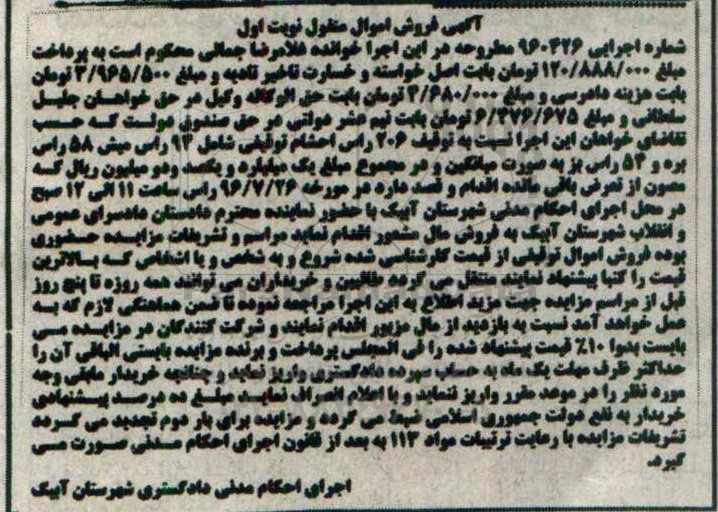 آگهی فروش اموال منقول نوبت اول
شماره اجرایی ۹۶۰۴۲۶ مطروحه در این اجرا خوانده غلامرضا جمالی محکوم است به پرداخت
مبلغ ۱۲۰/۸۸۸/۰۰۰ تومان بابت اصل خواسته و خسارت تاخیر تادیه و مبلغ ۳/۹۶۵/۵۰۰ تومان
بابت هزینه دادرسی و مبلغ ۳/۶۸۰/۰۰۰ تومان بابت حق الوکاله وکیل در حق خواهان جلیل
سلطانی و مبلغ ۶/۳۷۶/۶۷۵ تومان بابت نیم عشر دولتی در حق صندوق دولت که حسب
تقاضای خواهان این اجرا نسبت به توقیف ۲۰۶ راس احشام توقیفی شامل ۹۴ راس میش ۵۸ راس
بره و ۵۴ راس بز به صورت میانگین و در مجموع مبلغ یک میلیارد و یکصد ودو میلیون ریال که
مصون از تعرض باقی مانده اقدام و قصد دارد در مورخه ۹۶/۷/۲۶ راس ساعت ۱۱ الی ۱۲ صبح
در محل اجرای احکام مدنی شهرستان آبیک با حضور نماینده محترم دادستان دادسرای عمومی
و انقلاب شهرستان آبیک به فروش مال مشهور اقدام نماید مراسم و تشریفات مزایده حضوری
بوده فروش اموال توقیفی از قیمت کارشناسی شده شروع و به شخص و یا اشخاص که بالاترین
قیمت را کتبا پیشنهاد نمایند منتقل می گردد طالبین و خریداران می توانند همه روزه تا پنج روز
قبل از مراسم مزایده جهت مزید اطلاع به این اجرا مراجعه نموده تا ضمن هماهنگی لازم که به
عمل خواهد آمد نسبت به بازدید از مال مزبور اقدام نمایند و شرکت کنندگان در مزایده می
بایست بدوا ۱۰٪ قیمت پیشنهاد شده را فی المجلس پرداخت و برنده مزایده بایستی الباقی آن را
حداکثر ظرف مهلت یک ماه به حساب سپرده دادگستری واریز نماید و چنانچه خریدار مابقی وجه
مورد نظر را در موعد مقرر واریز ننماید و یا اعلام انصراف نماید مبلغ ده درصد پیشنهادی
خریدار به نفع دولت جمهوری اسلامی ضبط می گردد و مزایده برای بار دوم تجدید می گردد
تشریفات مزایده با رعایت ترتیبات مواد ۱۱۳ به بعد از قانون اجرای احکام مدنی صورت می
گیرد.
اجرای احکام مدنی دادگستری شهرستان آبیک